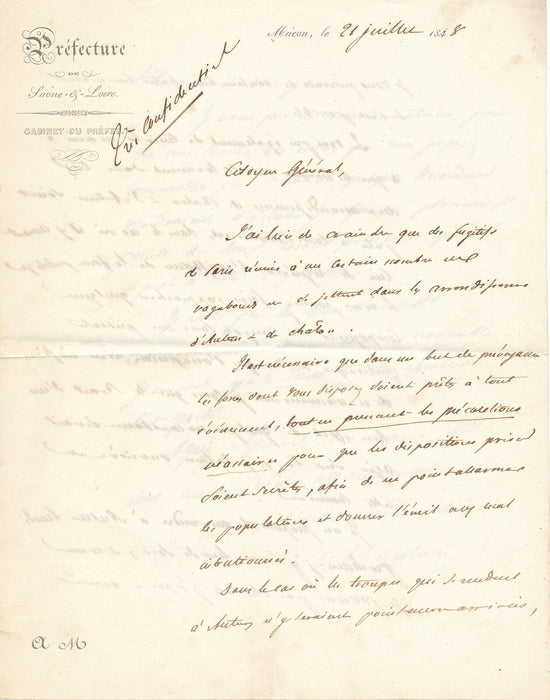 Préfecture
DE
Saône-&-Loire.
CABINET DU PRÉFET
Très confidentiel
Mâcon, le 21 juillet 1848
Citoyen Général,
J'ai lieu de craindre que des fugitifs
de Paris réunis à un certain nombre de
vagabonds ne se jettent dans les arrondissemens
d'Autun & de Chalon.
Il est nécessaire que dans un but de prévoyance
les forces dont vous disposez soient prêtes à tout
événement, tout en prenant les précautions
nécessaires pour que les dispositions prises
soient secrètes, afin de ne point alarmer
les populations et donner l'éveil aux mal
intentionnés.
Dans le cas où les troupes qui se rendent
à Autun n'y seraient point encore arrivées,
A M